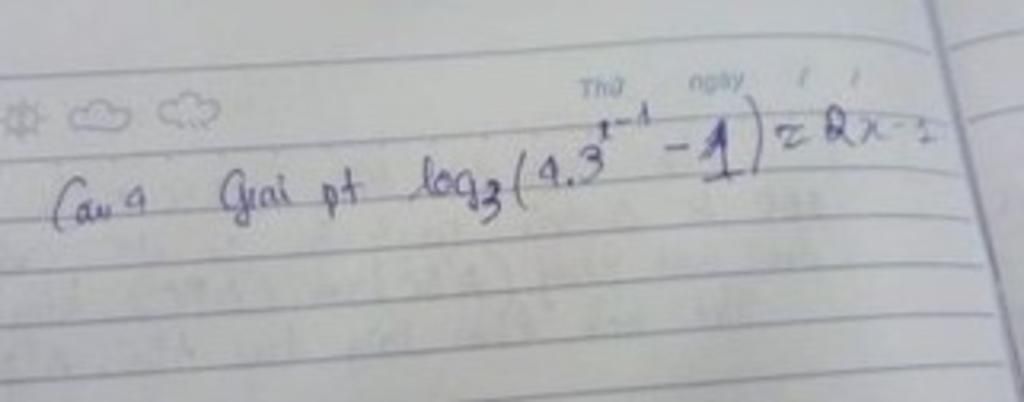 Thứ ngày / /
Câu 4 Giải pt log₃(4.3ˣ⁻¹ - 1) = 2x - 1